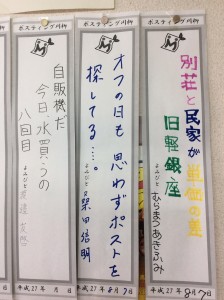 ポスティング川柳
別荘と
民家が
旧軽銀座
よみびと むらまつあきふみ
平成27年 8月7日
ポスティング川柳
オフの日も 思わずポストを
探してる…。
よみびと 柴田信明
平成27年 8月7日
ポスティング川柳
自販機だ
今日、水買うの
八回目
よみびと
平成27年 月 日